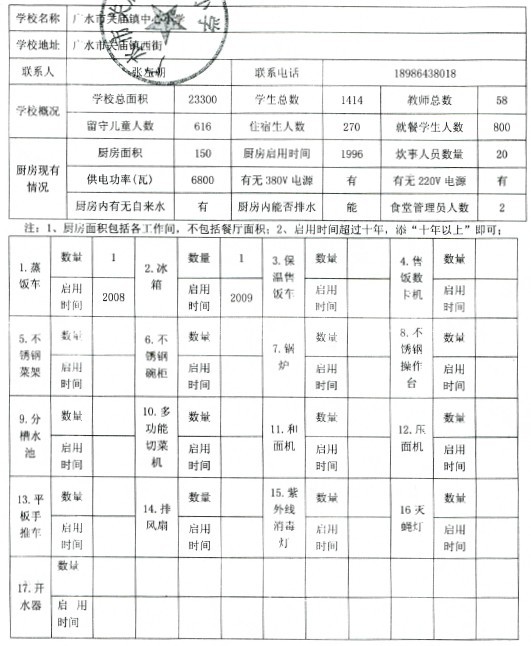 学校名称 广水市关庙镇中心小学
学校地址 广水市关庙镇西街
联系人 张 朝 联系电话 18986438018
学校概况
学校总面积 23300 学生总数 1414 教师总数 58
留守儿童人数 616 住宿生人数 270 就餐学生人数 800
厨房现有情况
厨房面积 150 厨房启用时间 1996 炊事人员数量 20
供电功率(瓦) 6800 有无380V电源 有 有无220V电源 有
厨房内有无自来水 有 厨房内能否排水 能 食堂管理员人数 2
注：1、厨房面积包括各工作间，不包括餐厅面积；2、启用时间超过十年，添“十年以上”即可；
1.蒸饭车 数量 1 2.冰箱 数量 1 3.保温售饭车 数量 4.售饭数卡机 数量
启用时间 2008 启用时间 2009 启用时间 启用时间
5.不锈钢菜架 数量 6.不锈钢碗柜 数量 7.锅炉 数量 8.不锈钢操作台 数量
启用时间 启用时间 启用时间 启用时间
9.分槽水池 数量 10.多功能切菜机 数量 11.和面机 数量 12.压面机 数量
启用时间 启用时间 启用时间 启用时间
13.平板手推车 数量 14.排风扇 数量 15.紫外线消毒灯 数量 16灭蝇灯 数量
启用时间 启用时间 启用时间 启用时间
17.开水器 数量
启用时间